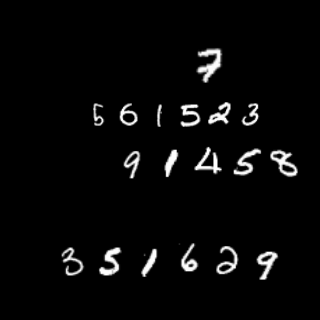 7
561523
91458
351629